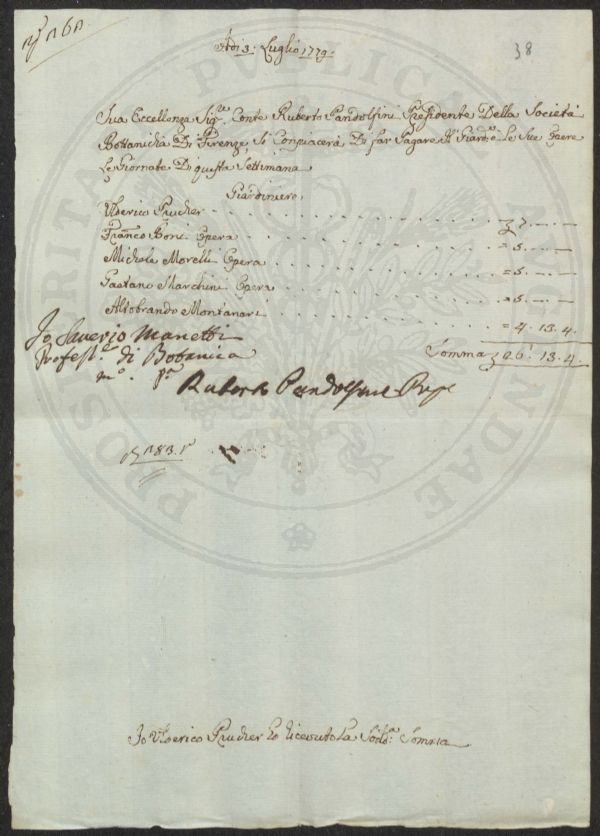 38
Adi 3: Luglio 1779.
Sua Eccellenza Sig.re Conte Ruberto Pandolfini Presidente Della Società
Bottanicha Di Firenze, Si Conpiacerà Di far Pagare Al Giard.o Le Sue Opere
Le Giornate Di questa Settimana
Giardiniere
Ulderico Prucher - - - - - - - - - - - - 7 . — . —
Franco Boni Opera - - - - - - - - - - - = 5 . — . —
Michele Morelli Opera - - - - - - - - - = 5 . — . —
Gaetano Marchini Opera - - - - - - - - = 5 . — . —
Altobrando Montanari - - - - - - - - - = 4 . 13 . 4 .
Somma 26 . 13 . 4 .
Io Saverio Manetti
Profess.e di Botanica
m.o p.a
Ruberto Pandolfini Pres
Io Ulderico Prucher ho Riceuto La Sod.a Somma
PROSPERITATI PUBLICAE AUGENDAE